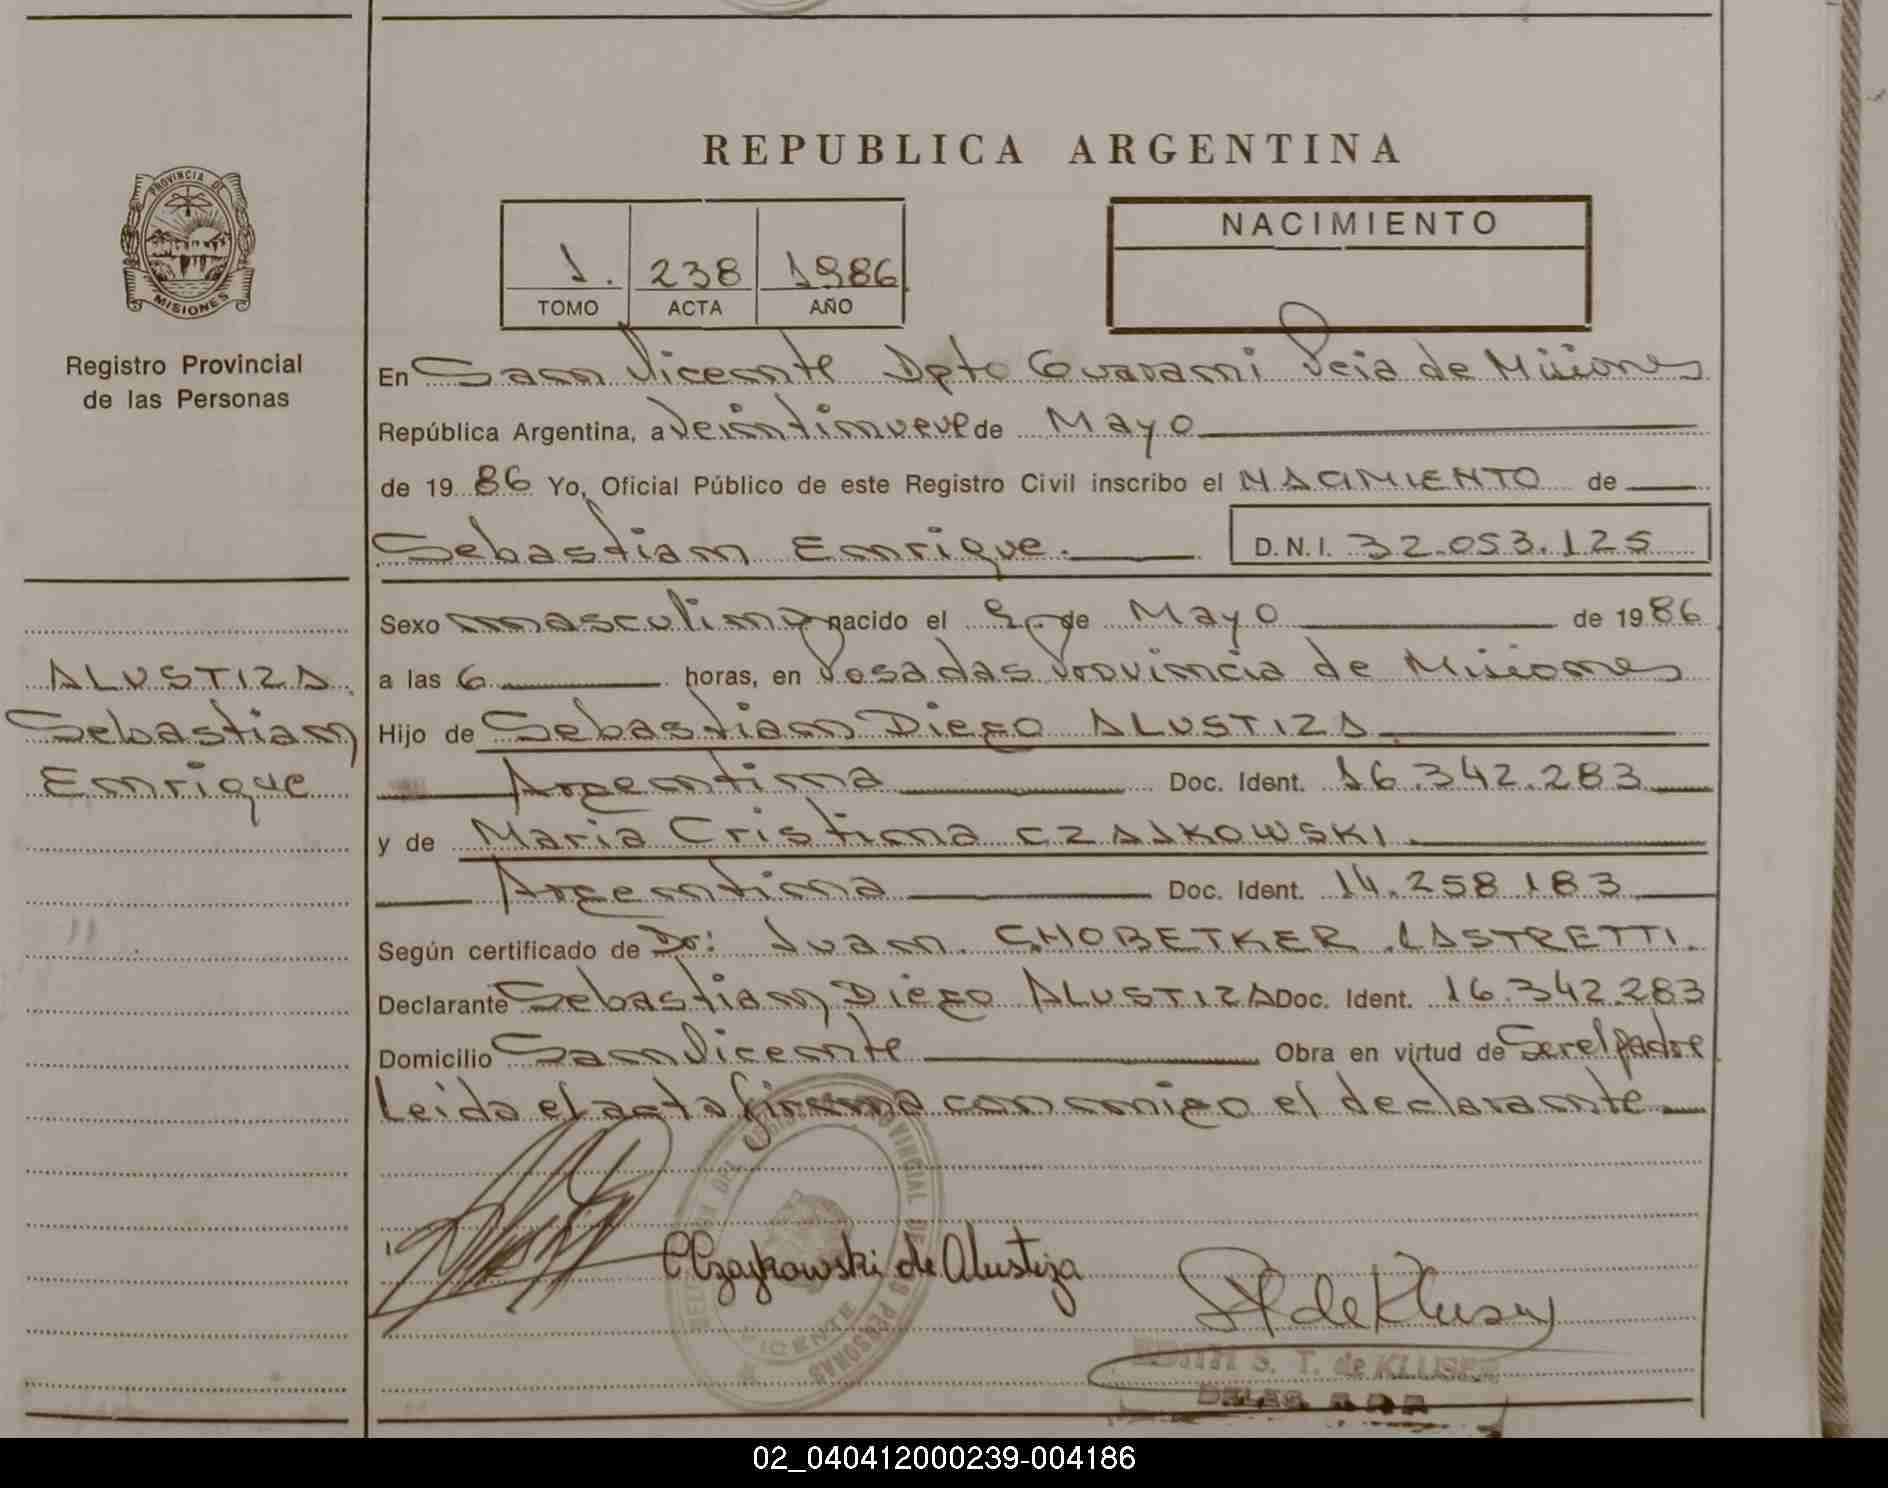 REPUBLICA ARGENTINA
PROVINCIA DE
MISIONES
Registro Provincial
de las Personas
1. 238 1986
TOMO ACTA AÑO
NACIMIENTO
En San Vicente Dpto Guarani Pcia de Misiones
República Argentina, a Veintinueve de Mayo
de 19 86 Yo, Oficial Público de este Registro Civil inscribo el NACIMIENTO de
Sebastian Enrique. D.N.I. 32.053.125
Sexo masculino nacido el 9 de Mayo de 19 86
a las 6 horas, en Posadas Provincia de Misiones
ALUSTIZA
Sebastian
Enrique
Hijo de Sebastian Diego ALUSTIZA
Argentina Doc. Ident. 16.342.283
y de Maria Cristina CZAJKOWSKI
Argentina Doc. Ident. 14.258.183
Según certificado de Dr: Juan CHOBETKER LASTRETTI.
Declarante Sebastian Diego ALUSTIZA Doc. Ident. 16.342.283
Domicilio San Vicente Obra en virtud de Ser el padre
Leida el acta firma con migo el declarante
C Czajkowski de Alustiza
S. T. de KLUSER
02_040412000239-004186